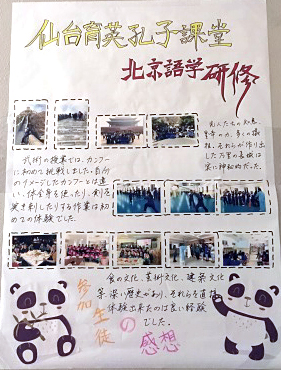 仙台育英孔子課堂
北京語学研修
武術の授業では、カンフー
に初めて挑戦しました。自分
のイメージしたカンフーとは違
い、体全身を使ったり、剣を
突き刺したりする作業は初
めての体験でした。
先人たちの知恵
それらが作り出
した万里の長城は
実に神秘的だった。
食の文化、芸術文化、建築文化
等、深い歴史があり、それらを直接
体験出来たのは良い経験
でした。
参加生徒の感想